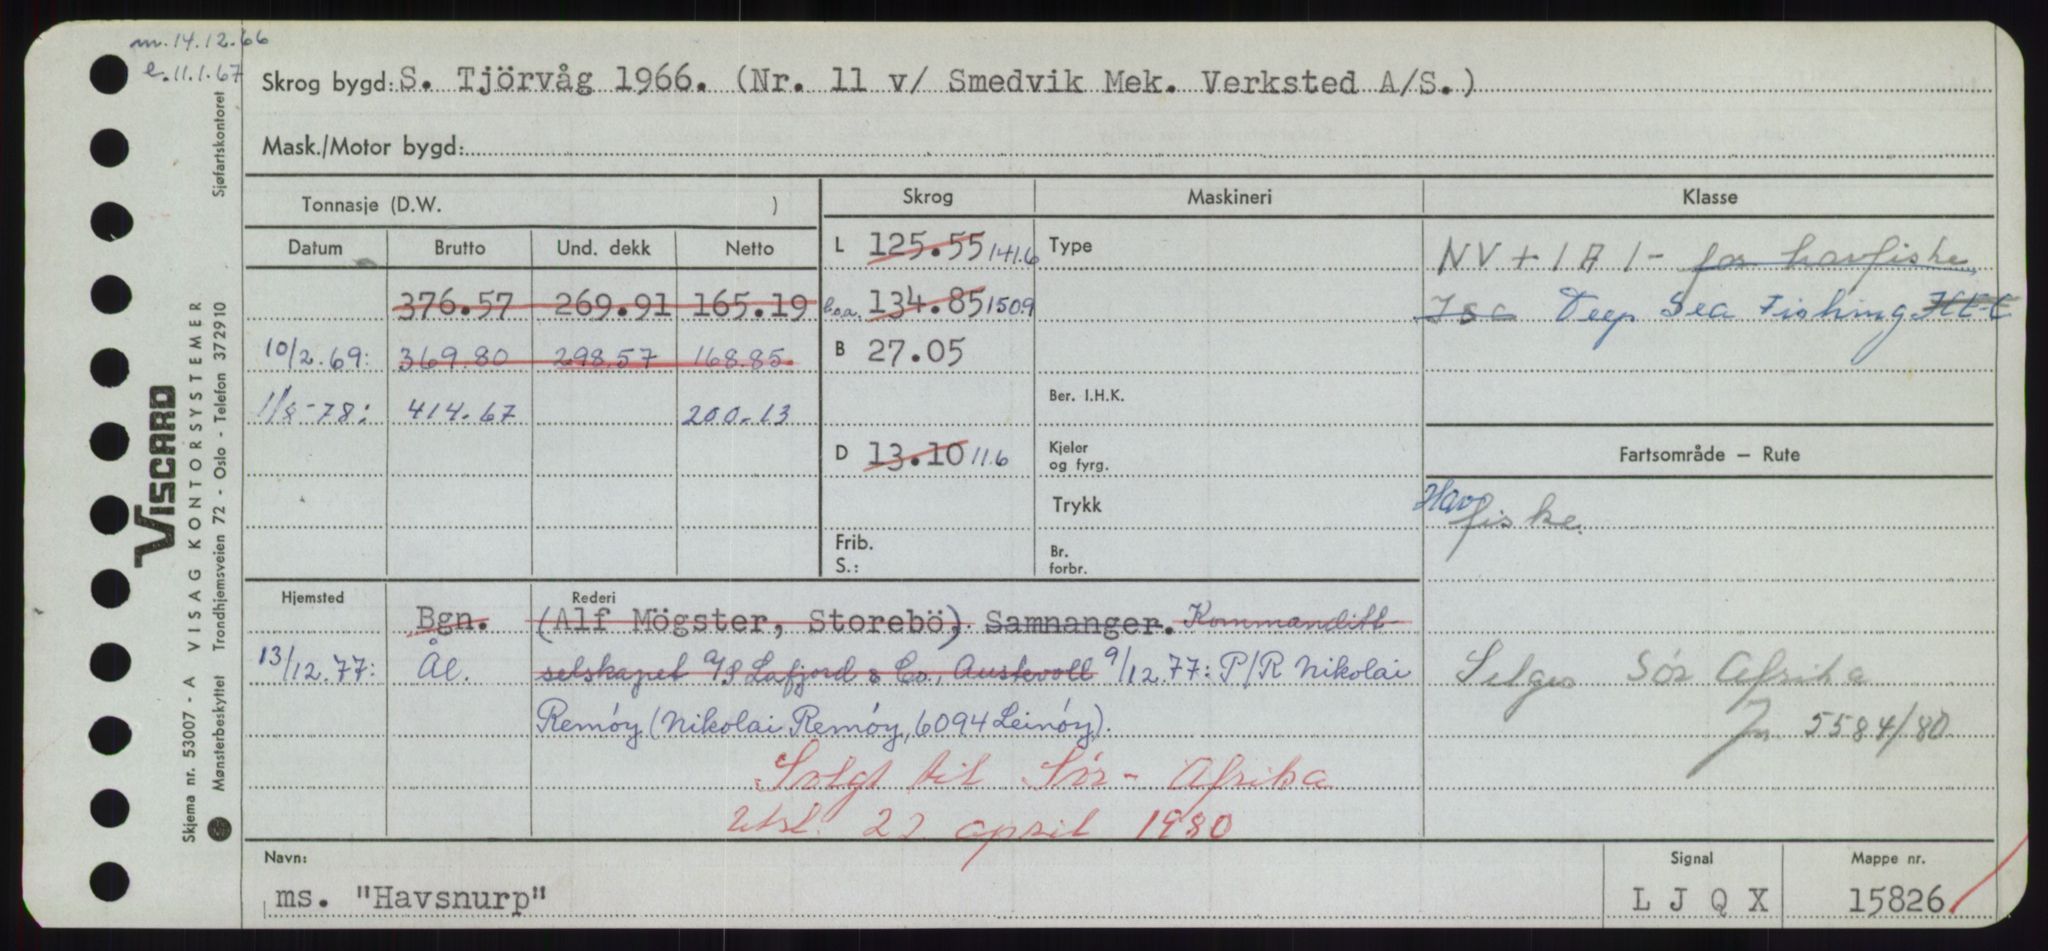 m. 14.12.66
e. 11.1.67
Skrog bygd: S. Tjörvåg 1966. (Nr. 11 v/ Smedvik Mek. Verksted A/S.)
Mask./Motor bygd:
Tonnasje (D.W. )
Skrog Maskineri Klasse
Datum Brutto Und. dekk Netto
L 125.55 141.6 Type
NV + 1A1 - for havfiske
376.57 269.91 165.19
L.o.a. 134.85 150.9
Isc Deep Sea Fishing
10/2.69: 369.80 298.57 168.85
B 27.05
Ber. I.H.K.
1/8-78: 414.67 200.13
D 13.10 11.6
Kjeler og fyrg.
Fartsområde – Rute
Trykk
Havfiske.
Frib.
S.:
Br. forbr.
Hjemsted Rederi
Bgn. (Alf Mögster, Storebö). Samnanger. Kommanditt-
13/12.77: Ål. selskapet A/S Lafjord & Co., Austevoll 9/12.77: P/R Nikolai
Remöy (Nikolai Remöy, 6094 Leinöy).
Selges Sör Afrika
Jn 5584/80
Solgt til Sör-Afrika
Utsl. 23 april 1980
Navn:
ms. "Havsnurp"
Signal
L J Q X
Mappe nr.
15826
VISCARD
Skjema nr. 53007 - A VISAG KONTORSYSTEMER
Mønsterbeskyttet Trondhjemsveien 72 - Oslo - Telefon 372910
Sjøfartskontoret